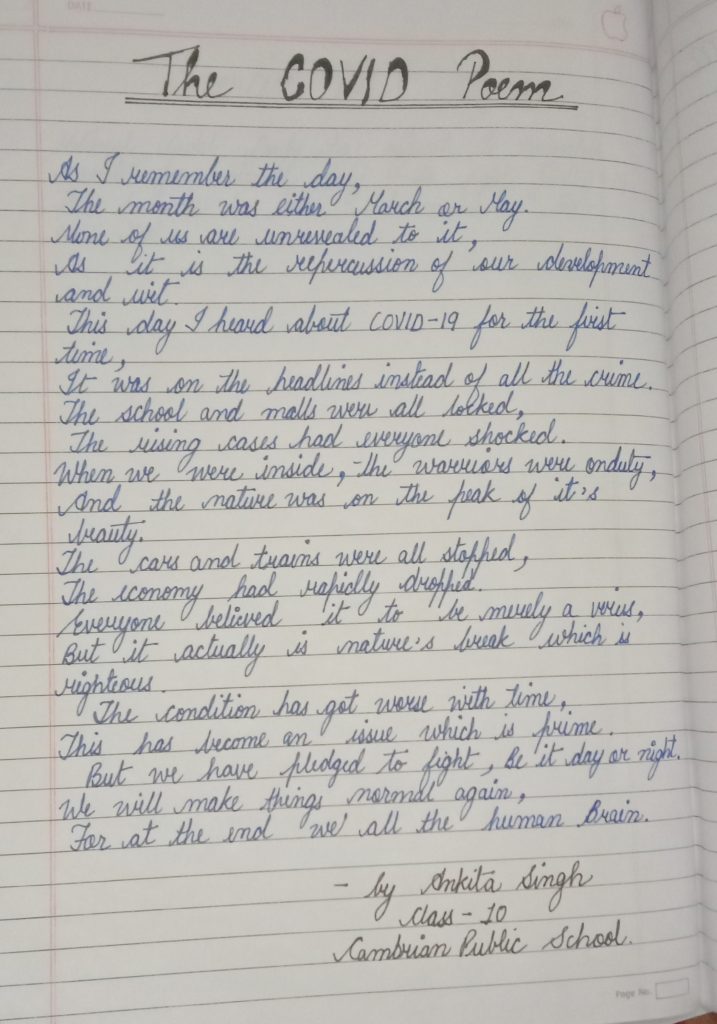 DATE
The COVID Poem
As I remember the day,
The month was either March or May.
None of us are unrevealed to it,
As it is the repercussion of our development
and wit.
This day I heard about COVID-19 for the first
time,
It was on the headlines instead of all the crime.
The school and malls were all locked,
The rising cases had everyone shocked.
When we were inside, the warriors were onduty,
And the nature was on the peak of it's
beauty.
The cars and trains were all stopped,
The economy had rapidly dropped.
Everyone believed it to be merely a virus,
But it actually is nature's break which is
righteous.
The condition has got worse with time,
This has become an issue which is prime.
But we have pledged to fight, Be it day or night.
We will make things normal again,
For at the end we' all the human Brain.
- by Ankita Singh
Class - 10
Cambrian Public School.
Page No.